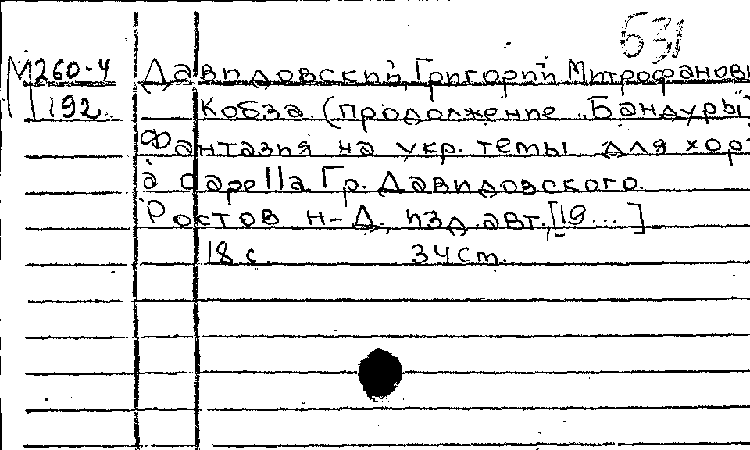 631
М260-4 Давидовский, Григорий Митрофанови
I 192 Кобза (продолжение "Бандуры")
Фантазия на укр. темы для хора
a capella Гр. Давидовского.
Ростов н-Д, изд. авт., [19...]
18 с. 34 см.